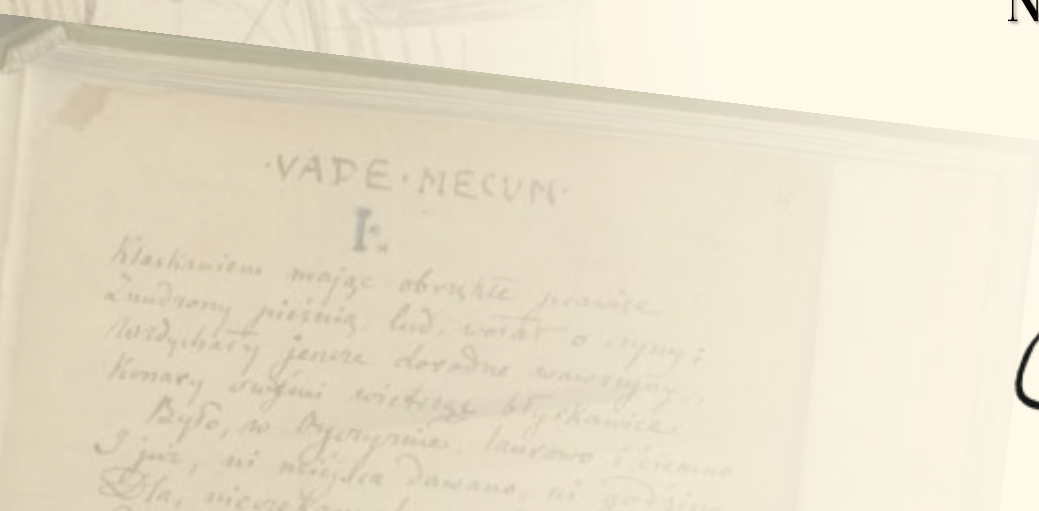 N
·VADE·MECUM·
I.
Klaskaniem mając obrzękłe prawice
Znudzony pieśnią, lud, wołał o czyny;
Wzdychały jeszcze dorodne wawrzyny,
Konary swymi wietrząc błyskawice.
Było, w Ojczyźnie, laurowo i ciemno
I już, ni miejsca dawano, ni godziny
Dla, nieczekanych